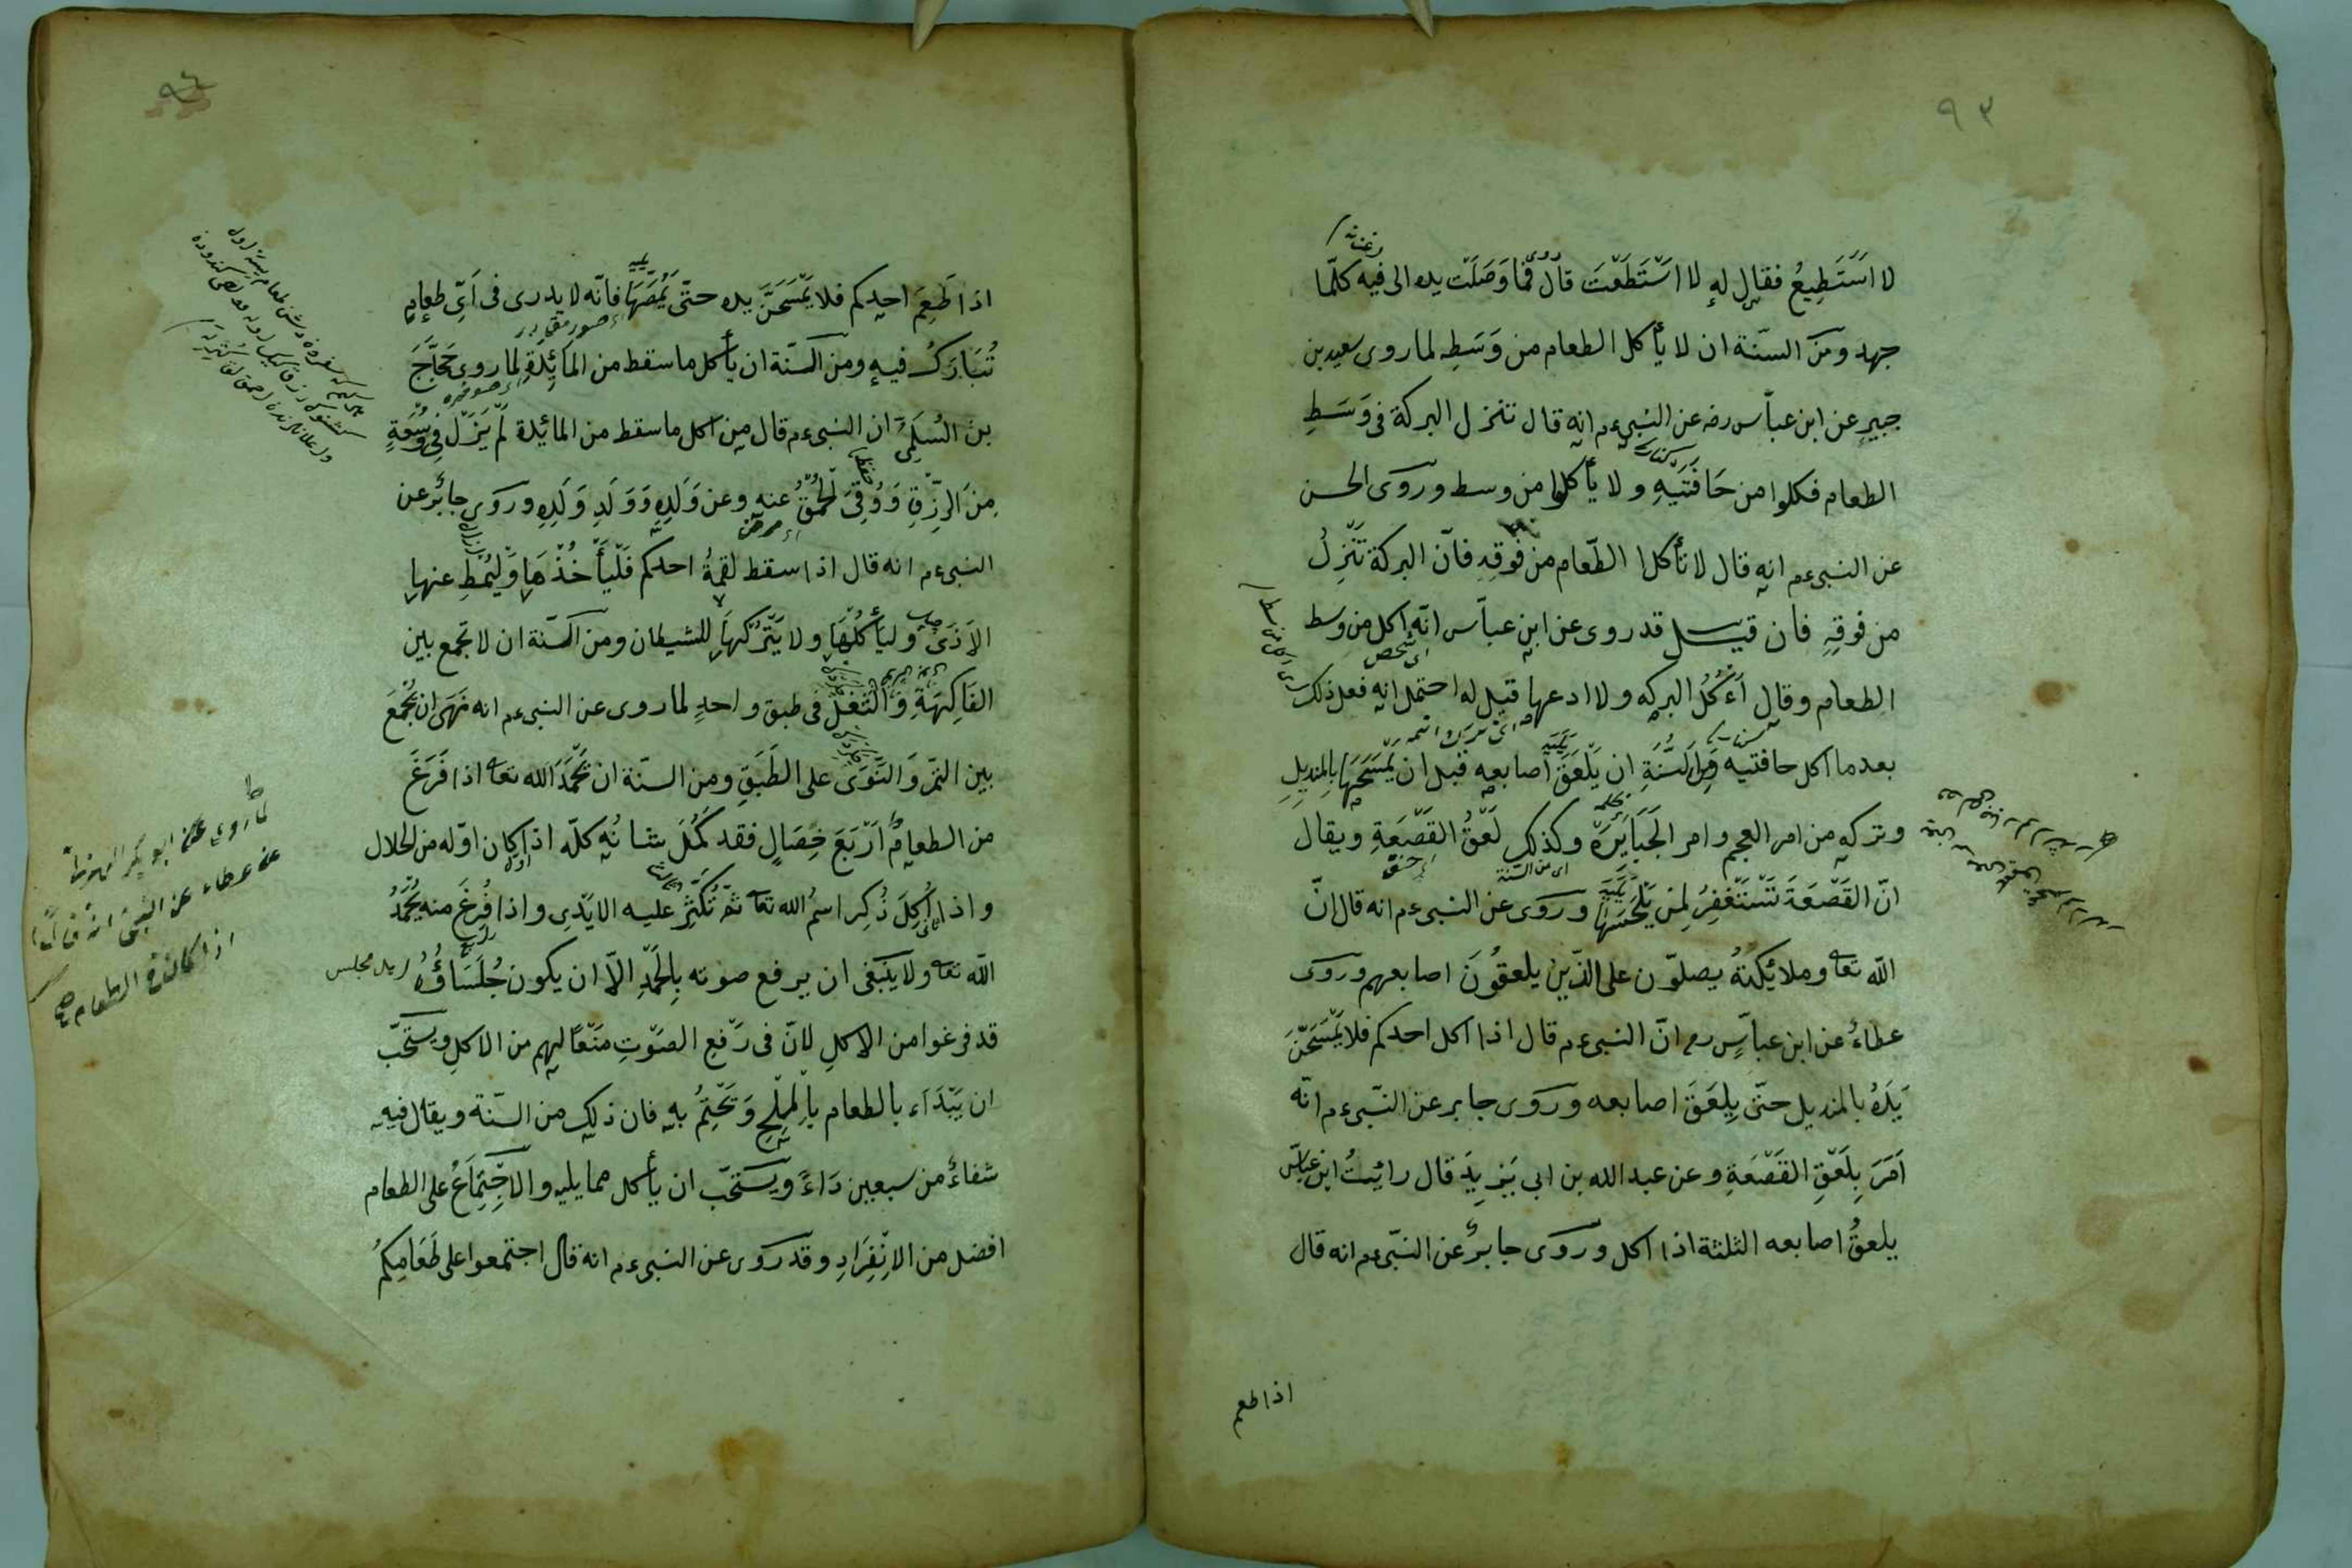 ٩٣
لا اَسْتَطِيعُ فقال له لا اسْتَطَعْتَ قال فما وَصَلَتْ يده الى فيه كلّما
جهد ومن السنّة ان لا يأكل الطعام من وَسَطِه لما روى سعيد بن
جبير عن ابن عبّاس رضه عن النبىءم انه قال تنزل البركة فى وَسَطِ
الطعام فكلوا من حَافَتَيْهِ ولا يأكلوا من وسط وروى الحسن
عن النبىءم انه قال لا تأكلا الطّعام من فَوقِهِ فانّ البركة تَنْزِلُ
من فوقِهِ فان قيل قد روى عن ابن عباّس انّه اكل من وسط
الطعام وقال اَءكُلُ البركه ولا ادعها قيل له احتمل انه فعل ذلك
بعدما اكل حافتيه ومن السُّنَّةِ ان يَلْعَقَ اصابعه قبل ان يَمْسَحَهَا بِالمنديلِ
وتركه من امر العجم وامر الجَبَابَرَة وكذلك لَعْقُ القَصْعَةِ ويقال
انّ القَصْعَةَ تَسْتَغْفِرُ لِمَن يَلْحَسَهَا وروى عن النبىءم انه قال انّ
اللّه تعا وملائِكتهُ يصلوّن على الذّين يلعقُونَ اصابعهم وروى
عطاءُ عن ابن عباسٍّ رم انّ النبىءم قال اذا اكل احدكم فلا يَمْسَحَنَّ
يَدَهُ بالمنديل حتّى يلعَقَ اصابعه وروى جابر عن النّبىءم انّه
اَمَرَ بِلَعْقِ القَصْعَةِ وعن عبد الله بن ابى يَزِيدَ قال رائيتُ ابن عبّاس
يلعقُ اصابعه الثلثة اذا اكل وروى جابرُ عن النّبىءم انه قال
اذا طعم
٩٤
اذا طَعِمَ احدكم فلا يَمْسَحَنَّ يده حتّى يَمُصَّهَا فانّه لا يدرى فى اَىِّ طعامٍ
تُبَارَكُ فيه ومن السنّة ان يأكل ما سقط من المَائِدَةِ لما روى حَجَّاجَ
بن السُلَمِىّ ان النبىءم قال من اكل ما سقط من المائيدة لَمْ يَزَلْ فِى وُسْعَةٍ
مِنَ الرِزْقِ وَوُقِىَ الحُمْقُ عنه وعن وَلَدِهِ وَوَلَدِ وَلَدِهِ وروى جابرُ عن
النبىءم انه قال اذا سقط لقمةُ احدكم فَلْيَأْخُذْهَا وَلْيُمْطِ عنها
الاَذَى وليأكُلْهَا ولا يَتْرُكْهَا للشيطان ومن السنّة ان لا تجمع بين
الفَاكِهَةِ وَالثُفْلِ فى طبق واحدٍ لما روى عن النبىءم انه نَهَى ان يُجْمَعَ
بين التمْرِ وَالنَّوَى على الطَبَقِ ومن السنّة ان يَحْمَدَ الله تعا اذا فَرَغَ
من الطعام اَرْبَعَ خِصَالٍ فقد كَمُلَ شانُه كلّه اذا كان اوّله من الحلال
واذا اُكِلَ ذُكِر اسمُ الله تعا ثم تُكَثِّرُ عليه الايَدِى واذا فُرِغَ منه يُحْمَدُ
اللّه تعا ولا يَنْبَغى ان يرفع صوته بِالحَمْدِ الاّ ان يكون جُلَسَاؤُهُ
قد فرغوا من الاكلِ لانّ فى رَفْعِ الصَوْتِ مَنْعًا لهم من الاكلِ ويستحبّ
ان يَبْدَاء بالطعام بِالمِلْحِ وَيَخْتِمُ به فان ذلك من السنّة ويقال فيه
شفاءُ من سبعين دَاءً ويستحبّ ان يأكل مما يليه والاجْتِمَاعُ على الطعام
افضل من الانْفِرَادِ وقد روى عن النبىءم انه قال اجتمعوا على طَعَامِكُمْ